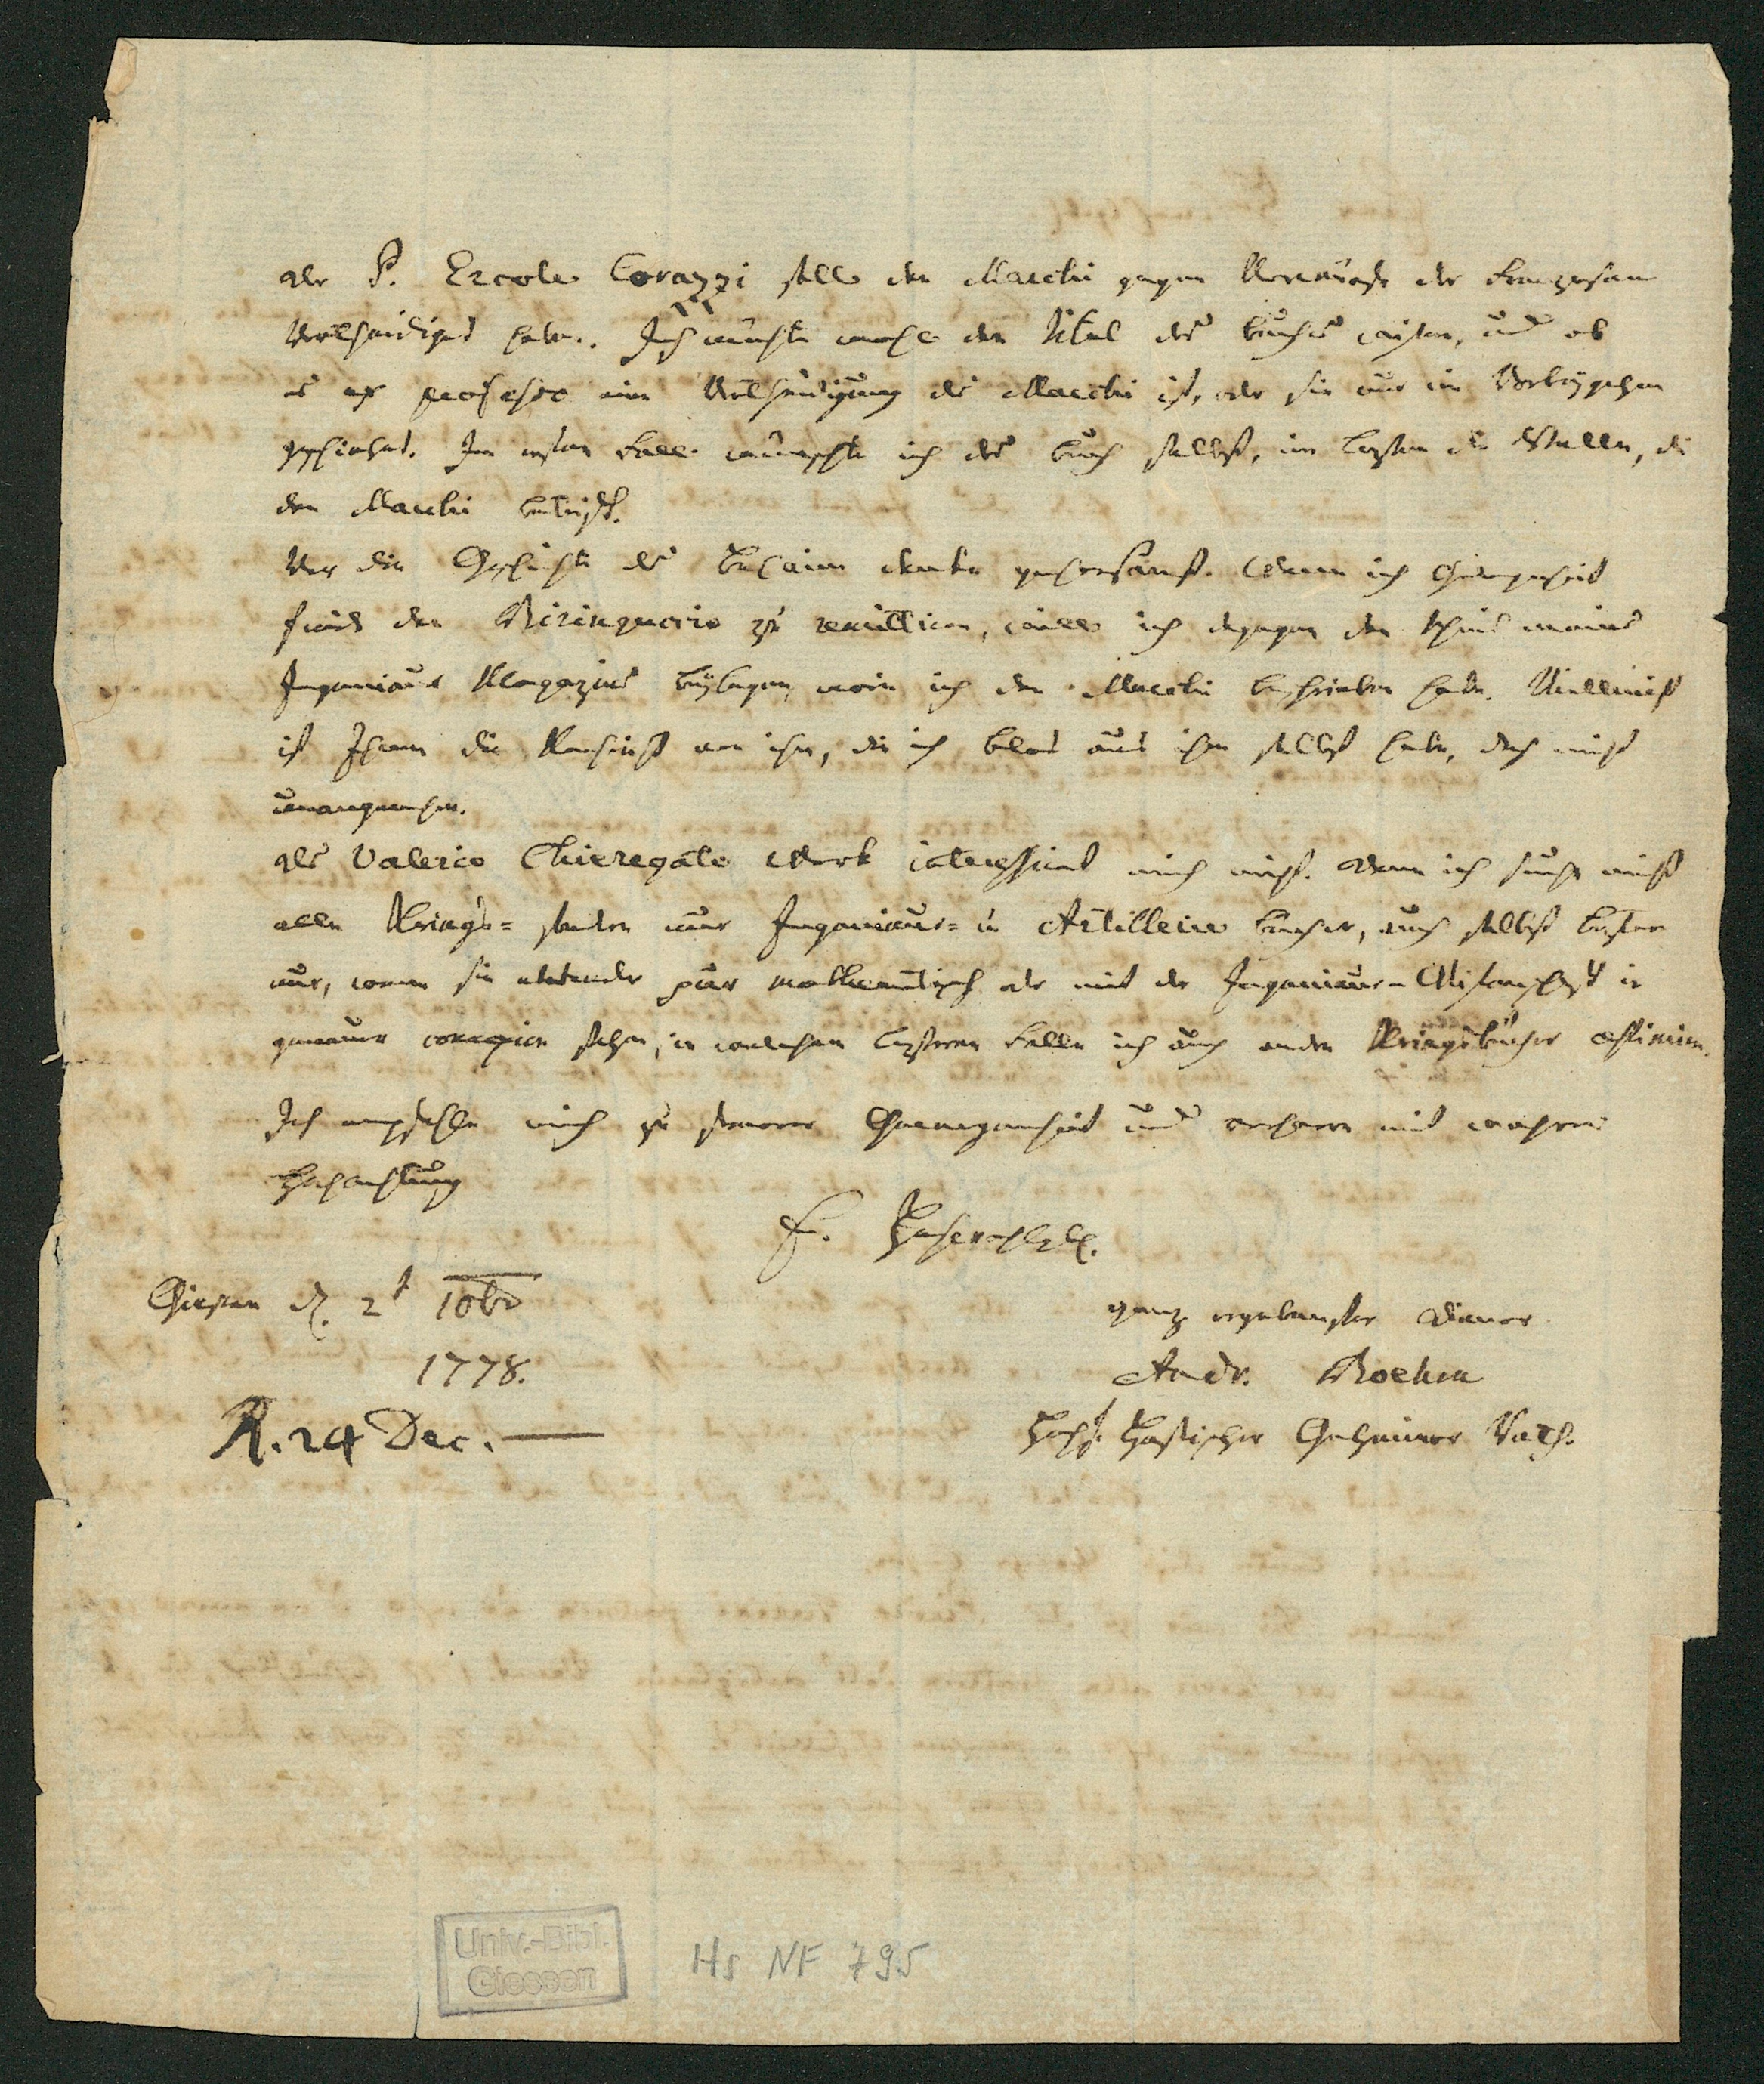 der P. Ercole Corazzi soll den Marchi gegen Vorwürfe der Franzosen
vertheidiget haben. Ich möchte wohl den Titul des Buches wissen, und ob
es ex professo eine Vertheidigung des Marchi ist, oder sie nur im Vorbeygehen
geschiehet. Im ersten Fall wünschte ich das Buch selbst, im lezten die Stelle, die
den Marchi betrifft.
Vor die Geschichte des danke gehorsamst. Wenn ich Gelegenheit
finde den Biringuccio zu remittiren, will ich dagegen den Theil meines
Ingenieur Magazins beylegen, worin ich den Marchi beschrieben habe. Vielleicht
ist Ihnen die Nachricht von ihm, die ich blos aus ihm selbst habe, doch nicht
unangenehm.
Des Valerio Chieregato Werk interessirt mich nicht. Denn ich suche nicht
alle Kriegs= sondern nur Ingenieur= u Artillerie bücher, auch selbst leztere
nur, wenn sie entweder pur mathematisch oder mit der Ingenieur-Wissenschaft in
genauer connexion stehen, in welchem lezteren Falle ich auch andere Kriegsbücher aestimire.
Ich empfehle mich zu fernerer Gewogenheit und verharre mit wahrer
Hochachtung
Ew. Hochedelgeb.
Giessen d. 2t 10br
1778.
ganz ergebenster Diener
Andr. Boehm
Hochf. Hessischer Geheimer Rath.
R. 24 Dec. —
Univ.-Bibl.
Giessen
Hs NF 795